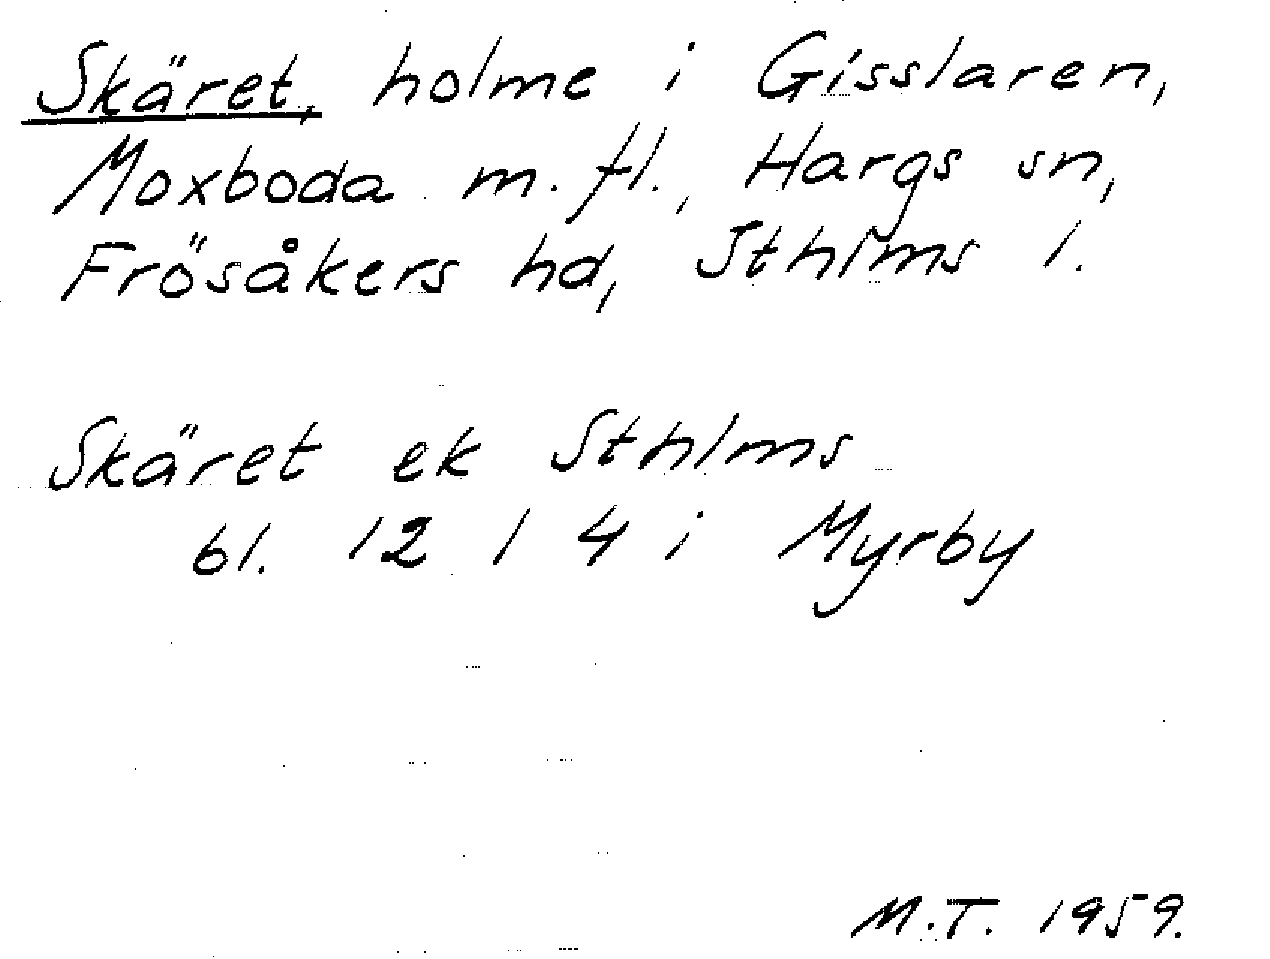 Skäret, holme i Gisslaren,
Moxboda m.fl., Hargs sn,
Frösåkers hd, Sthlms l.
Skäret ek Sthlms
bl. 12 1 4 i Myrby
M.T. 1959.